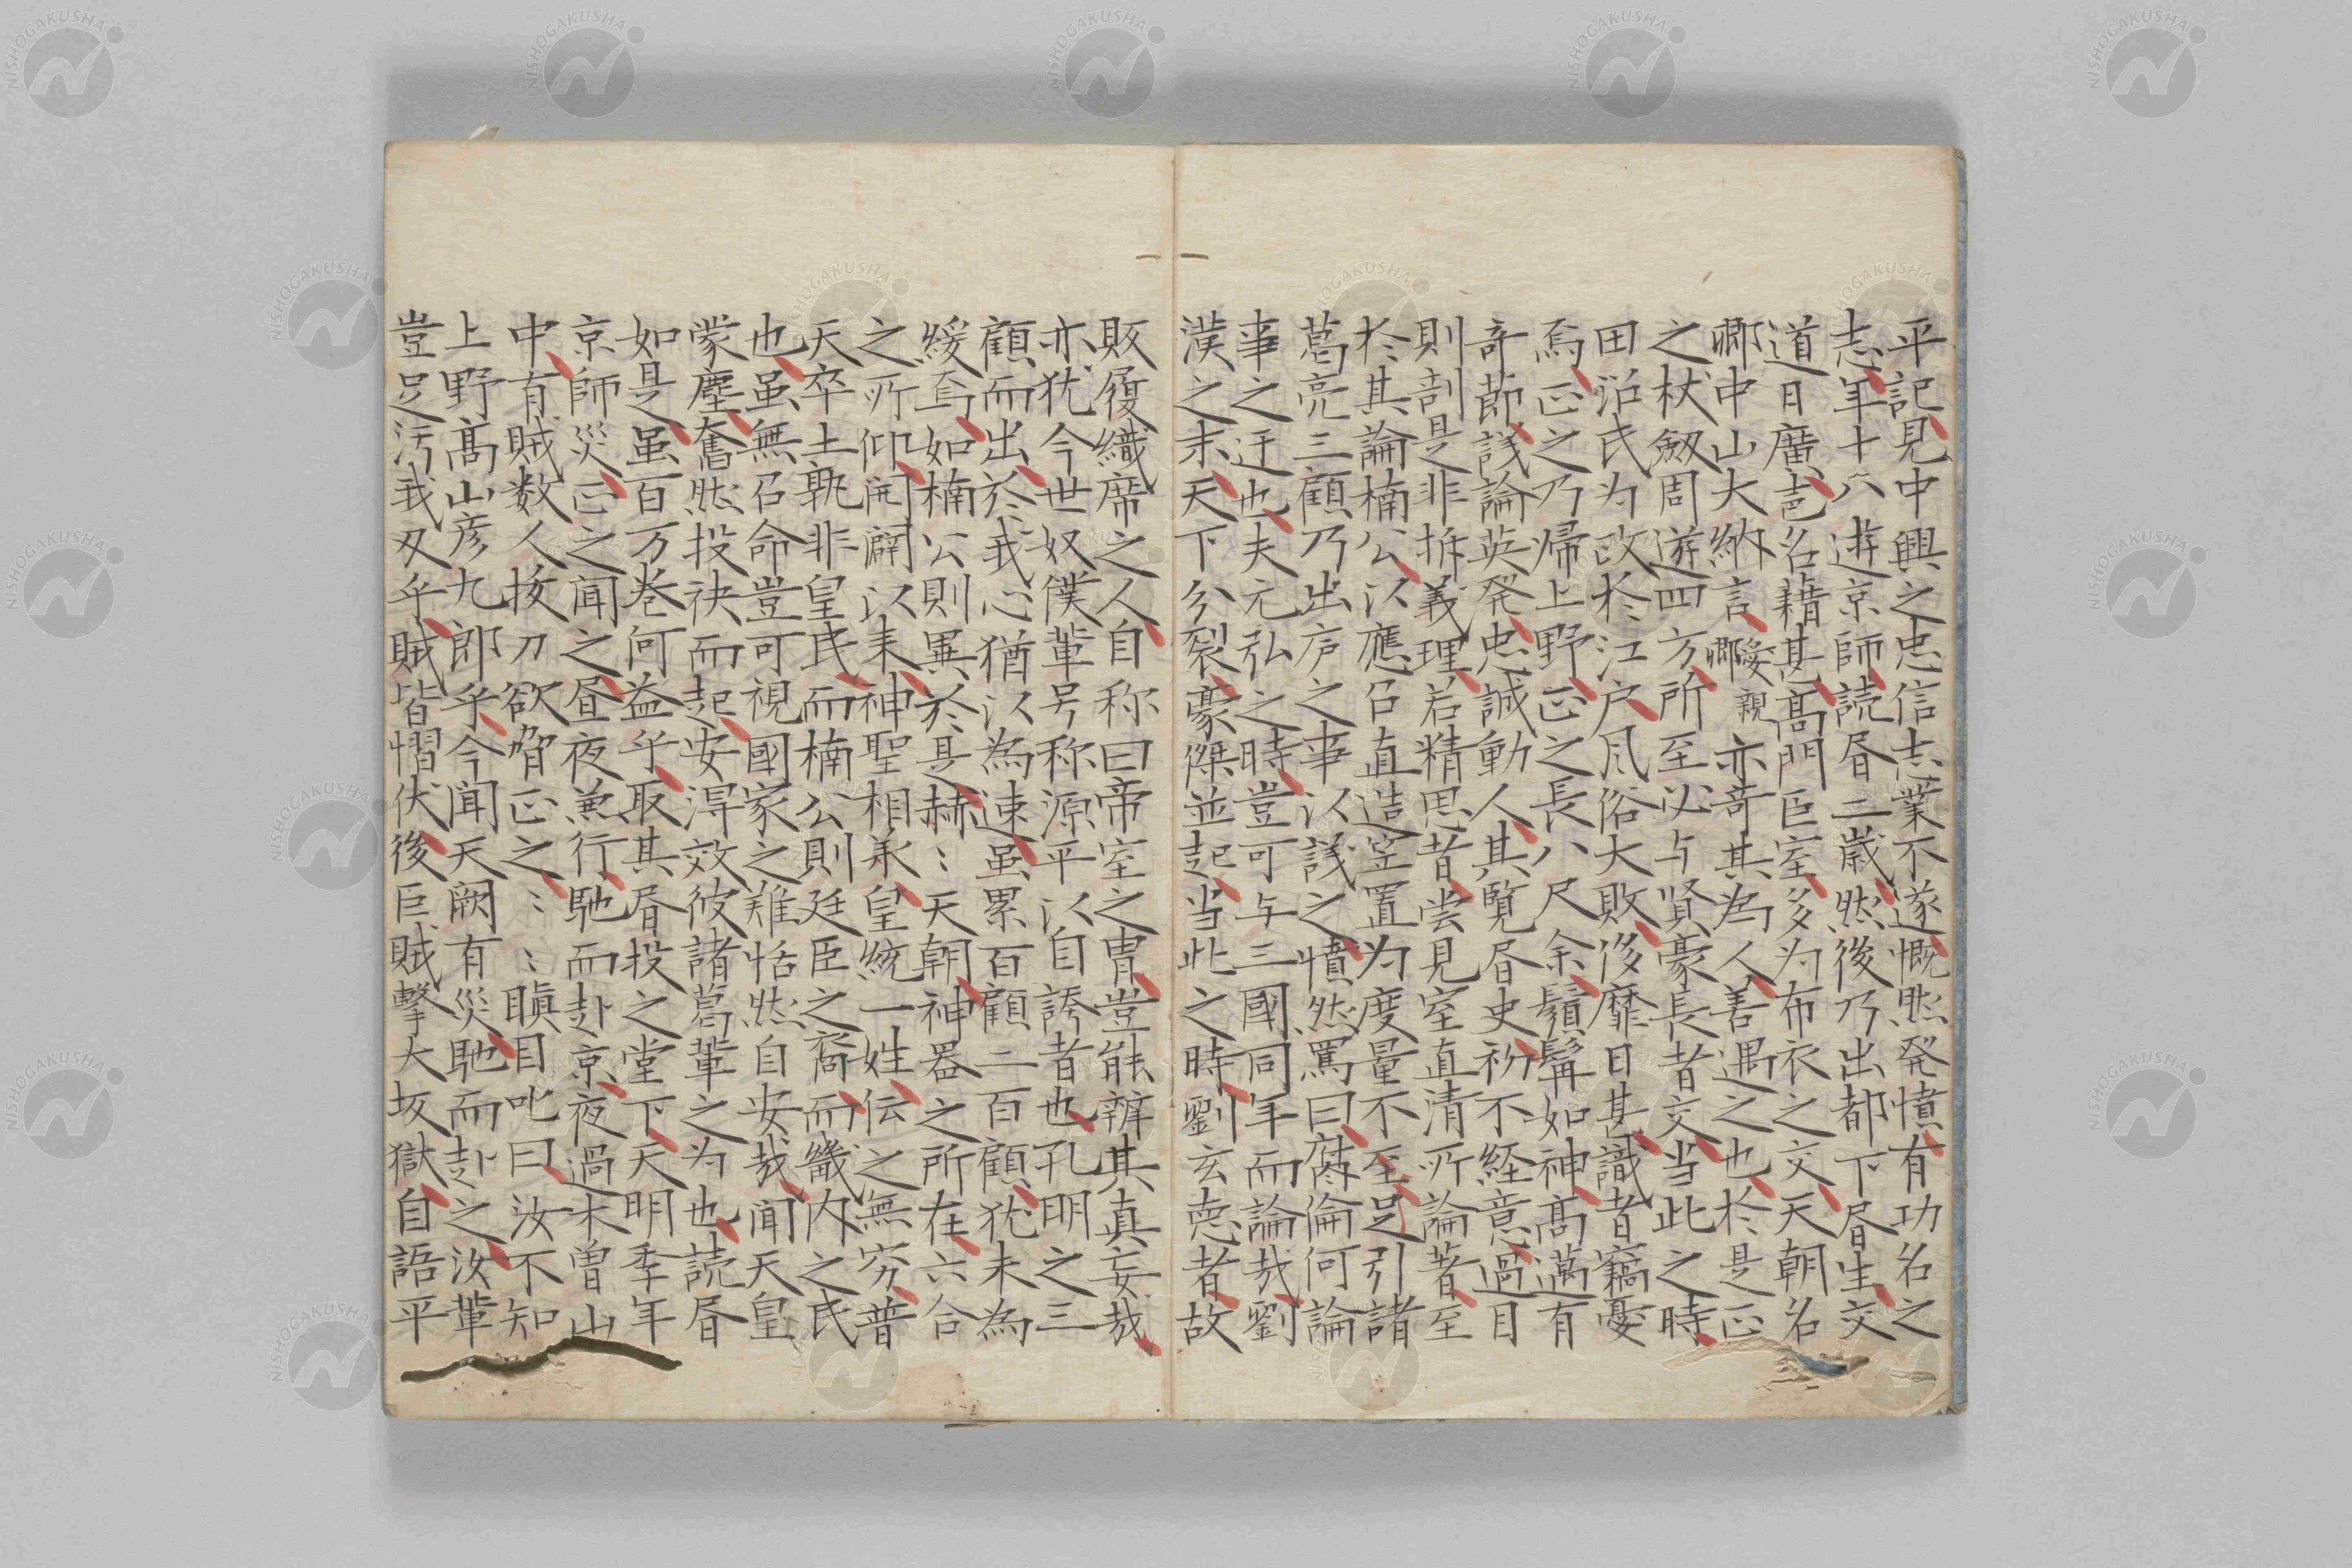 平記見中興之忠信志業不遂慨然発憤有功名之
志年十八遊京師読書二歳然後乃出都下書生交
道日廣声名籍甚高門巨室多为布衣之交天朝名
卿中山大納言愛親卿亦奇其為人善遇之也於是正
之杖劔周遊四方所至必与賢豪長者交当此之時
田沼氏为政於江戸風俗大敗侈靡日甚識者竊憂
焉正之乃帰上野正之長八尺余鬚髯如神高邁有
奇節議論英発忠誠動人其覧書史初不経意過目
則剖是非拆義理若精思者嘗見室直清所論著至
於其論楠公以應召直造笠置为度量不至足引諸
葛亮三顧乃出庐之事以議之憤然罵曰腐儒何論
事之迂也夫元弘之時豈可与三國同年而論哉劉
漢之末天下分裂豪傑並起当此之時劉玄悳者故
敗履織席之人自称曰帝室之胄豈能辨其真妄哉
亦犹今世奴僕輩号称源平以自誇者也孔明之三
顧而出於我心猶以為速虽累百顧二百顧犹未為
緩焉如楠公則異於是赫〻天朝神器之所在六合
之所仰開闢以来神聖相承皇統一姓伝之無穷普
天卒土孰非皇民而楠公則廷臣之裔而畿内之民
也虽無召命豈可視國家之難恬然自安哉聞天皇
蒙塵奮然投袂而起安淂效彼諸葛輩之为也読書
如是虽百万巻何益乎取其書投之堂下天明季年
京師災正之闻之昼夜兼行馳而赴京夜過木曽山
中有賊数人按刀欲脅正之〻〻瞋目叱曰汝不知
上野高山彦九郎乎今闻天闕有災馳而赴之汝輩
豈足汚我刃乎賊皆慴伏後巨賊撃大坂獄自語平